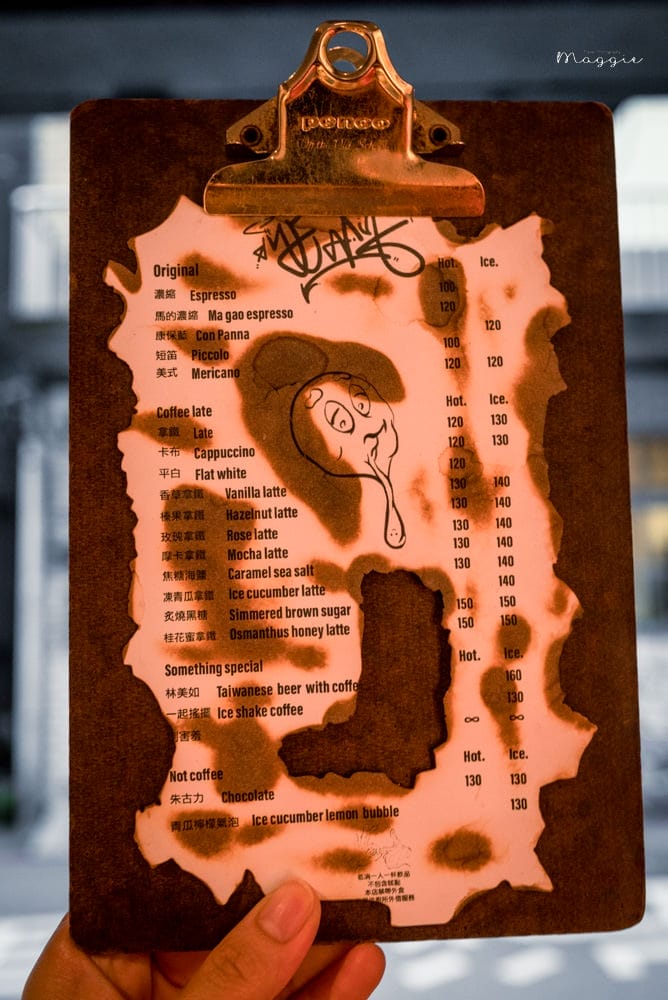 Maggie
penco
Original Hot. Ice.
濃縮 Espresso 100
馬的濃縮 Ma gao espresso 120
康保藍 Con Panna 120
短笛 Piccolo 100
美式 Mericano 120 120
Coffee late Hot. Ice.
拿鐵 Late 120 130
卡布 Cappuccino 120 130
平白 Flat white 120
香草拿鐵 Vanilla latte 130 140
榛果拿鐵 Hazelnut latte 130 140
玫瑰拿鐵 Rose latte 130 140
摩卡拿鐵 Mocha latte 130 140
焦糖海鹽 Caramel sea salt 130 140
凍青瓜拿鐵 Ice cucumber latte 140
炙燒黑糖 Simmered brown sugar 150 150
桂花蜜拿鐵 Osmanthus honey latte 150 150
Something special Hot. Ice.
林美如 Taiwanese beer with coffe 160
一起搖擺 Ice shake coffee 130
別害羞 ∞ ∞
Not coffee Hot. Ice.
朱古力 Chocolate 130 130
青瓜檸檬氣泡 Ice cucumber lemon bubble 130
低消一人一杯飲品
不包含糕點
本店禁帶外食